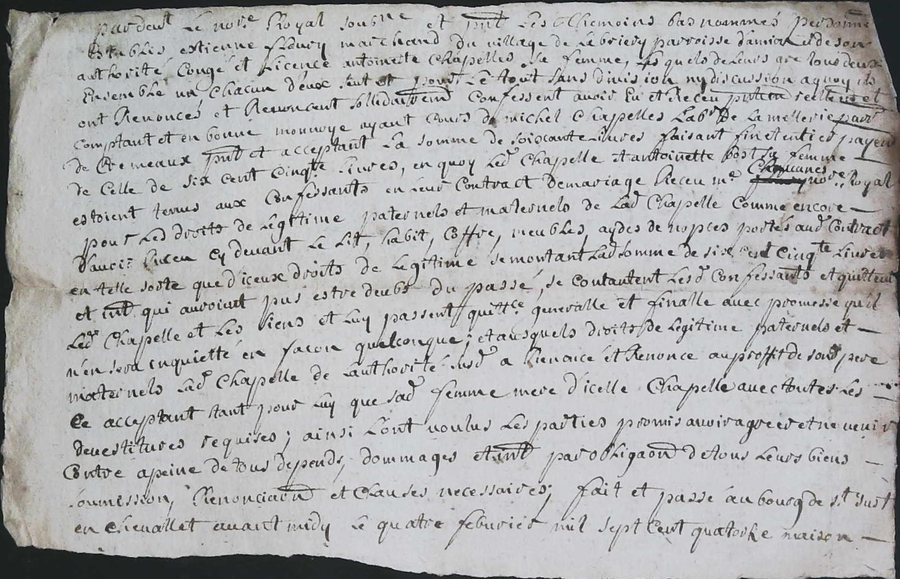 pardevt Le nore Royal soubne et pnt Les thesmoins bas nommés personne
establés estienne marchand du village de Lebriery parroisse d'amia et de son
authorité, Congé et Licence antoinette Chapelles sa femme, Lesquels de Leurs gre tous deux
Ensemble un Chacun d'eux seul et pour Le tout sans division ny discussion a quoy ils
ont Renoncés et Renoncent sollidairemt Confessent avoir Eu et Receu reellemt et
Comptant et en bonne monnoye ayant Cours de michel Chapelles Labr de La mellerie parr
de Cremeaux pnt et acceptant La somme de soixante Livres faisant fin et entier payen
de Celle de six Cent Cinqte Livres, en quoy Led Chapelle et antoinette sa femme
estoient tenus aux Confessants en Leur Contract de mariage Receu me Chavanes nore Royal
pour Les droits de Legittime paternels et maternels de Lad Chapelle Comme encore
d'avoir Receu Cy devant Le Lit, habit, Coffre, meubles, aydes de nopces portés aud Contract
en telle sorte que d'iceux droits de Legitime se montant Lad somme de six Cent Cinqte Livres
et int qui auroint pus estre deubs du passé, se Contantent Lesd Confessants et quittent
Led Chapelle et Les siens et Luy passent quittce generalle et finalle avec promesse qu'il
n'en sera inquietté en facon quelconque; et ausquels droits de Legitime paternels et
maternels Lad Chapelle de Lauthorité susd a Renoncé et Renonce au proffit de sond pere
Ce acceptant tant pour Luy que sad femme mere d'icelle Chapelle avec toutes Les
devestitures requises; ainsi L'ont voulus Les parties promis avoir agreer et ne venir
Contre a peine de tous depends, dommages et int par obligaon de tous Leurs biens
soumission, Renonciaon et Clauses necessaires; fait et passé au bourg de st Just
en Chevallet avant midy Le quatre febvrier mil sept Cent quatorze maison